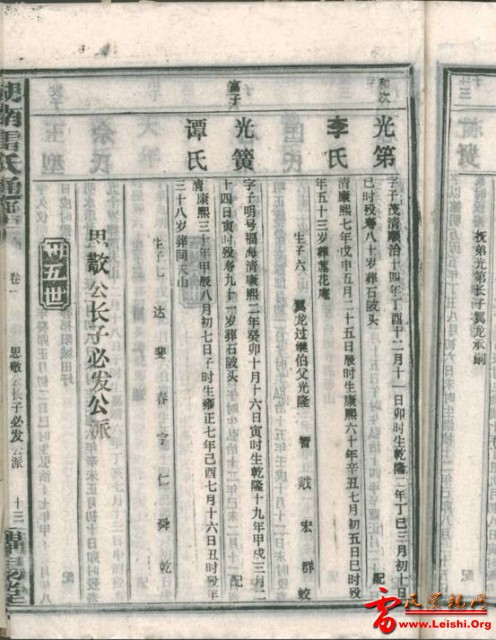 三
抚弟光第长子翼龙承嗣
和次
光第
字子茂清顺治十四年丁酉十二月十一日卯时生乾隆二年丁巳三月初十日
巳时殁寿八十岁葬石陂头
配
李氏
清康熙七年戊申五月二十五日辰时生康熙六十年辛丑七月初五日巳时殁
年五十三岁葬莲花庵
生子六
翼龙过继伯父光隆
智
戢
宏
群
蛟
富子
光簧
字子明号福海清康熙二年癸卯十月十六日寅时生乾隆十九年甲戌三月二
十四日寅时殁寿九十一岁葬石陂头
配
谭氏
清康熙三十年甲辰八月初七日子时生雍正七年己酉七月十六日丑时殁年
三十八岁葬同天山
生子七
达
斐
春
富
仁
舜
乾
思敬公长子必发公派
卅五世
湖南雷氏通谱
卷一
思敬公长子必发公派
十三
雷氏宗亲网
www.Leishi.Org